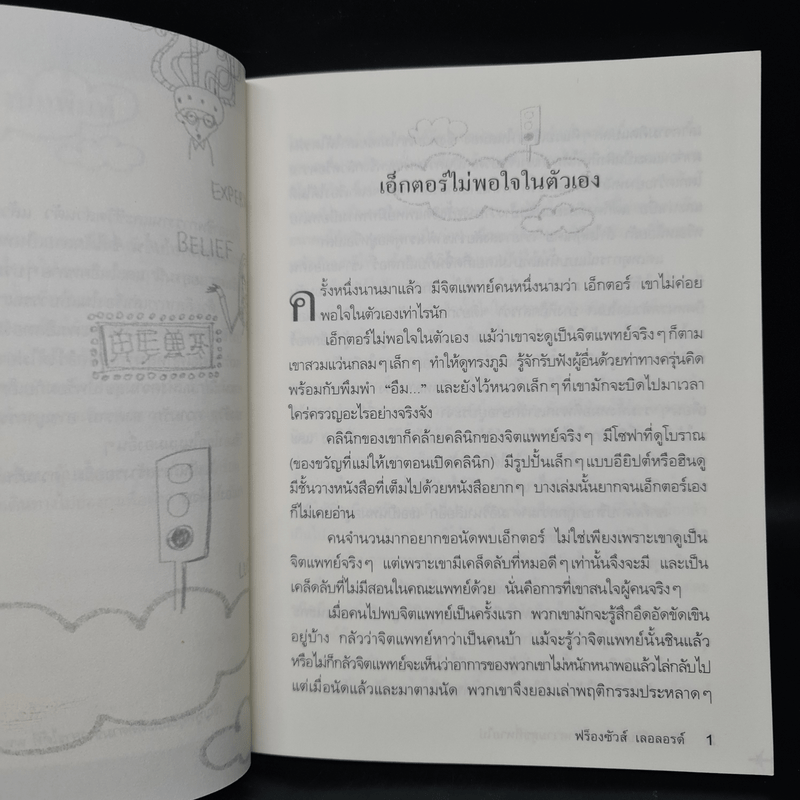 EXPER
BELIEF
เอ็กตอร์ไม่พอใจในตัวเอง
ครั้งหนึ่งนานมาแล้ว มีจิตแพทย์คนหนึ่งนามว่า เอ็กตอร์ เขาไม่ค่อย
พอใจในตัวเองเท่าไรนัก
เอ็กตอร์ไม่พอใจในตัวเอง แม้ว่าเขาจะดูเป็นจิตแพทย์จริงๆ ก็ตาม
เขาสวมแว่นกลมๆ เล็กๆ ทำให้ดูทรงภูมิ รู้จักรับฟังผู้อื่นด้วยท่าทางครุ่นคิด
พร้อมกับพึมพำ “อืม...” และยังไว้หนวดเล็กๆ ที่เขามักจะบิดไปมาเวลา
ใคร่ครวญอะไรอย่างจริงจัง
คลินิกของเขาก็คล้ายคลินิกของจิตแพทย์จริงๆ มีโซฟาที่ดูโบราณ
(ของขวัญที่แม่ให้เขาตอนเปิดคลินิก) มีรูปปั้นเล็กๆ แบบอียิปต์หรือฮินดู
มีชั้นวางหนังสือที่เต็มไปด้วยหนังสือยากๆ บางเล่มนั้นยากจนเอ็กตอร์เอง
ก็ไม่เคยอ่าน
คนจำนวนมากอยากขอนัดพบเอ็กตอร์ ไม่ใช่เพียงเพราะเขาดูเป็น
จิตแพทย์จริงๆ แต่เพราะเขามีเคล็ดลับที่หมอดีๆ เท่านั้นจึงจะมี และเป็น
เคล็ดลับที่ไม่มีสอนในคณะแพทย์ด้วย นั่นคือการที่เขาสนใจผู้คนจริงๆ
เมื่อคนไปพบจิตแพทย์เป็นครั้งแรก พวกเขามักจะรู้สึกอึดอัดขัดเขิน
อยู่บ้าง กลัวว่าจิตแพทย์หาว่าเป็นคนบ้า แม้จะรู้ว่าจิตแพทย์นั้นชินแล้ว
หรือไม่ก็กลัวจิตแพทย์จะเห็นว่าอาการของพวกเขาไม่หนักหนาพอแล้วไล่กลับไป
แต่เมื่อนัดแล้วและมาตามนัด พวกเขาจึงยอมเล่าพฤติกรรมประหลาดๆ
ฟร็องซัวส์ เลอลอรด์ 1